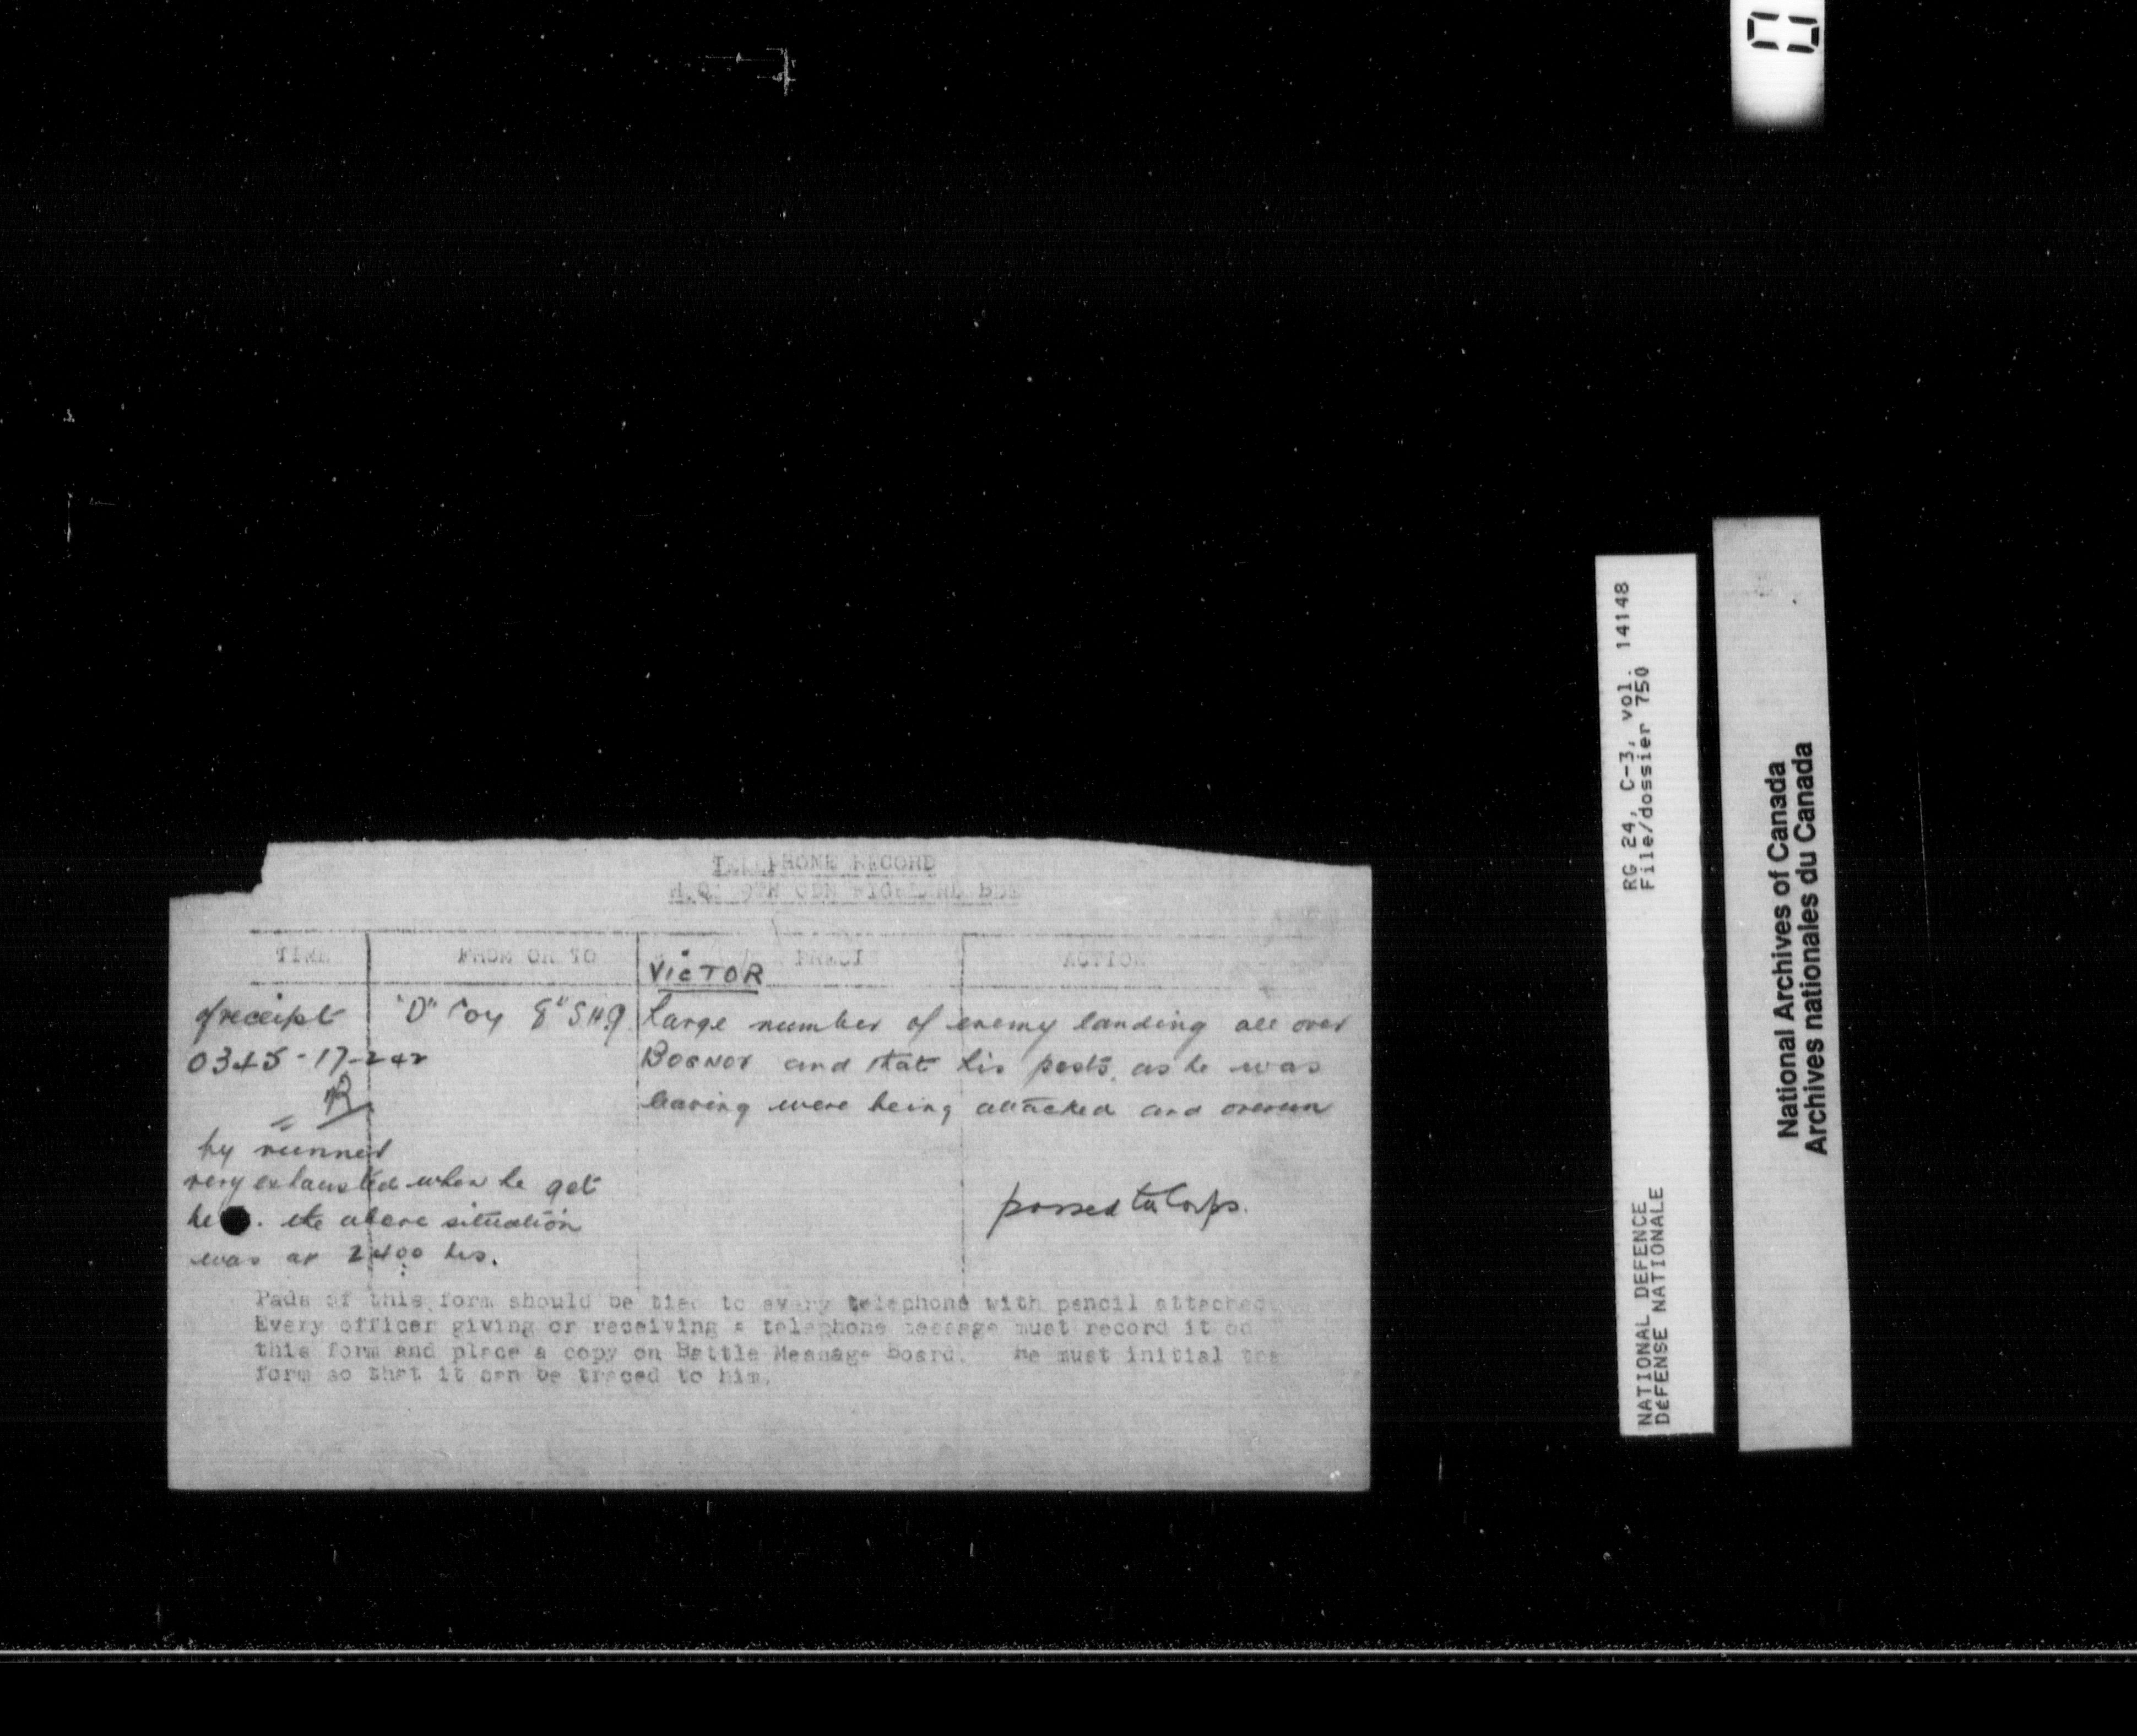 TELEPHONE RECORD
H.Q. 9TH CDN HIGHLAND BDE
TIME FROM OR TO PRECI ACTION
VICTOR
of receipt "D" Coy 8" SHQ Large number of enemy landing all over
0345-17-2-42 BOGNOR and that his posts, as he was
leaving were being attacked and overun
by runner
very exhausted when he got
he . the above situation
was at 2400 hrs.
passed to Corps.
Pads of this form should be tied to every telephone with pencil attached
Every officer giving or receiving a telephone message must record it on
this form and place a copy on Battle Meanage Board. He must initial the
form so that it can be traced to him.
NATIONAL DEFENCE RG 24, C-3, vol. 14148
DÉFENSE NATIONALE File/dossier 750
National Archives of Canada
Archives nationales du Canada